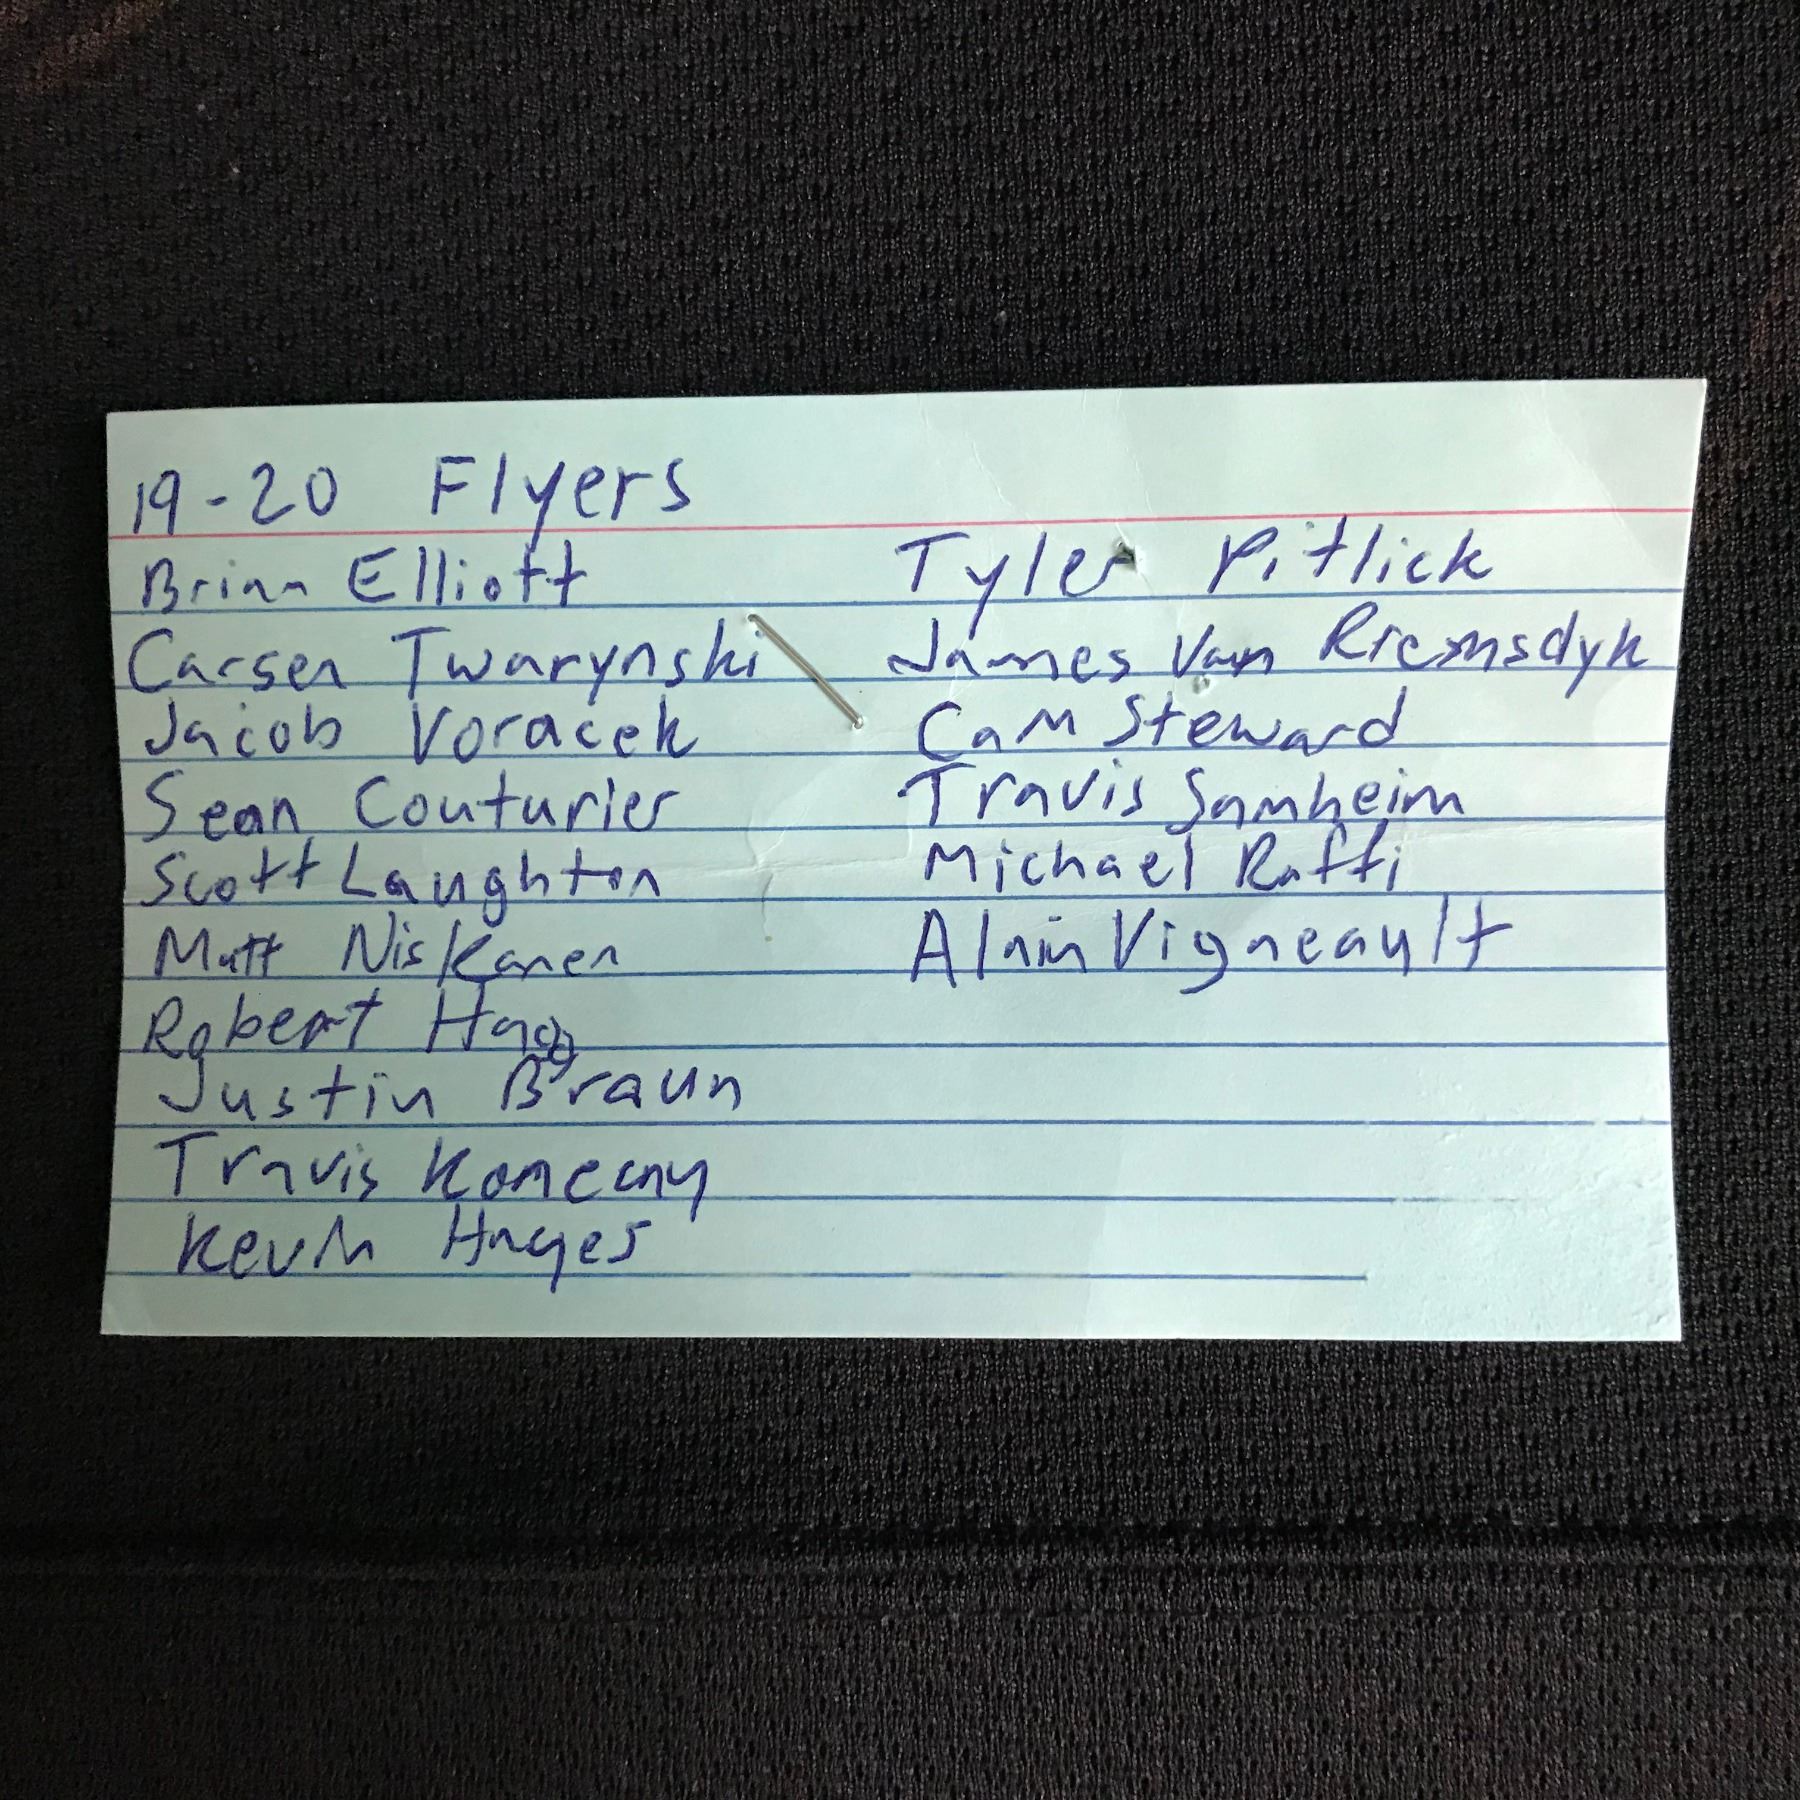 19-20 Flyers
Brian Elliott
Carsen Twarynski
Jacob Voracek
Sean Couturier
Scott Laughton
Matt Niskanen
Robert Hagg
Justin Braun
Travis Konecny
Kevin Hayes
Tyler Pitlick
James Van Riemsdyk
Cam Steward
Travis Sanheim
Michael Raffi
Alain Vigneault